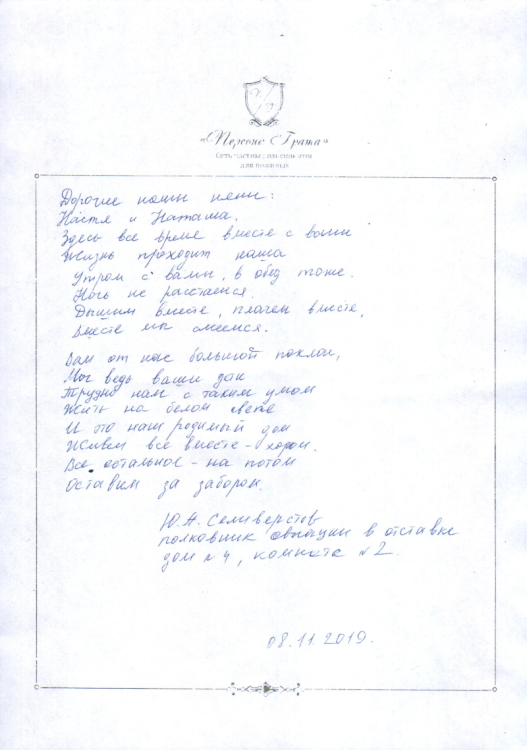 «Персона Грата»
Сеть частных пансионатов
для пожилых
Дорогие наши няни:
Настя и Наташа.
Здесь все время вместе с вами
Жизнь проходит наша
Утром с вами, в обед тоже.
Ночь не расстаемся.
Дышим вместе, плачем вместе,
Вместе мы смеемся.
Вам от нас большой поклон,
Мы ведь ваши
Трудно нам с таким умом
Жить на белом свете
И это наш родимый дом
Живем все вместе - хором.
Все остальное - на потом
Оставим за забором.
Ю.А. Селиверстов
полковник авиации в отставке
дом №4, комната №2.
08.11.2019.